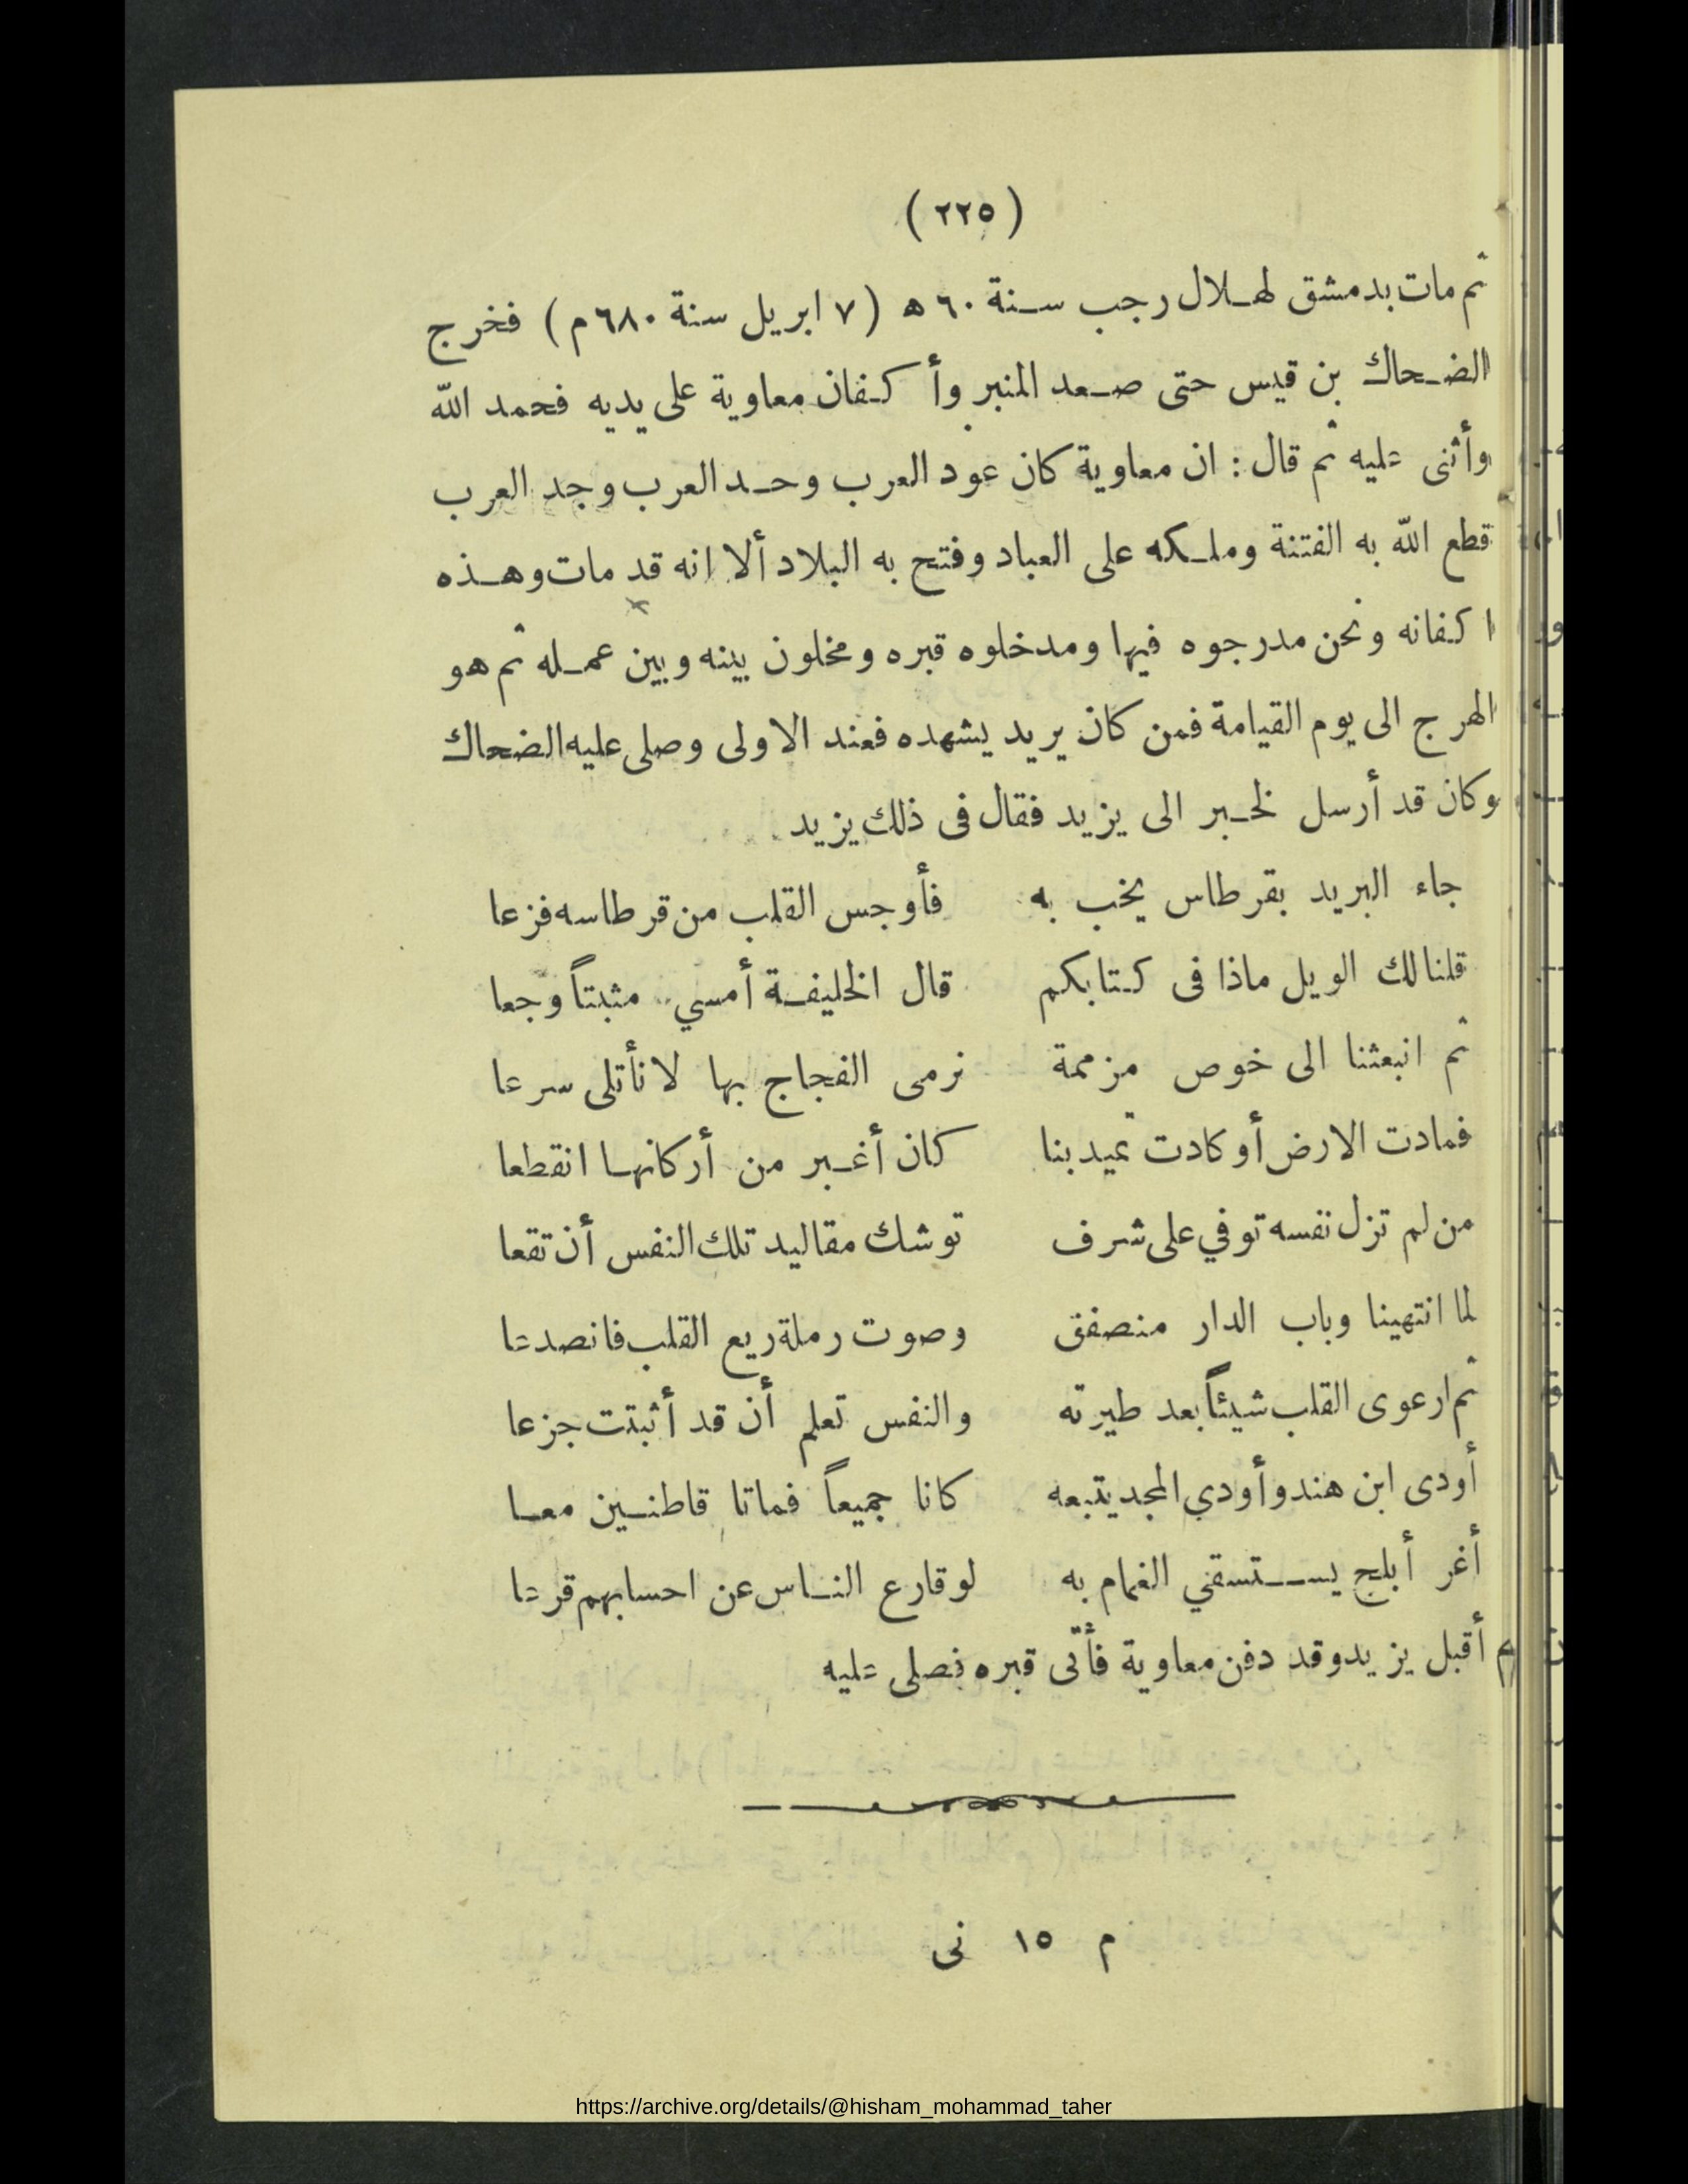 (٢٢٥)
ثم مات بدمشق لهلال رجب سنة ٦٠ ه (٧ ابريل سنة ٦٨٠ م) فخرج
الضحاك بن قيس حتى صعد المنبر وأكفان معاوية على يديه فحمد الله
وأثنى عليه ثم قال : ان معاوية كان عود العرب وحد العرب وجد العرب
قطع الله به الفتنة وملكه على العباد وفتح به البلاد ألا انه قد مات وهذه
اكفانه ونحن مدرجوه فيها ومدخلوه قبره ومخلون بينه وبين عمله ثم هو
الهرج الى يوم القيامة فمن كان يريد يشهده فعند الاولى وصلى عليه الضحاك
وكان قد أرسل لخبر الى يزيد فقال فى ذلك يزيد
جاء البريد بقرطاس يخب به فأوجس القلب من قرطاسه فزعا
قلنا لك الويل ماذا فى كتابكم قال الخليفة أمسي مثبتاً وجعا
ثم انبعثنا الى خوص مزممة نرمى الفجاج بها لا نأتلى سرعا
فمادت الارض أو كادت تميد بنا كان أغبر من أركانها انقطعا
من لم تزل نفسه توفي على شرف توشك مقاليد تلك النفس أن تقعا
لما انتهينا وباب الدار منصفق وصوت رملة ريع القلب فانصدعا
ثم ارعوى القلب شيئاً بعد طيرته والنفس تعلم أن قد أثبتت جزعا
أودى ابن هند وأودي المجد يتبعه كانا جميعاً فماتا قاطنين معا
أغر أبلج يستسقي الغمام به لو قارع الناس عن احسابهم قرعا
ثم أقبل يزيد وقد دفن معاوية فأتى قبره فصلى عليه
م ١٥ نى
https://archive.org/details/@hisham_mohammad_taher